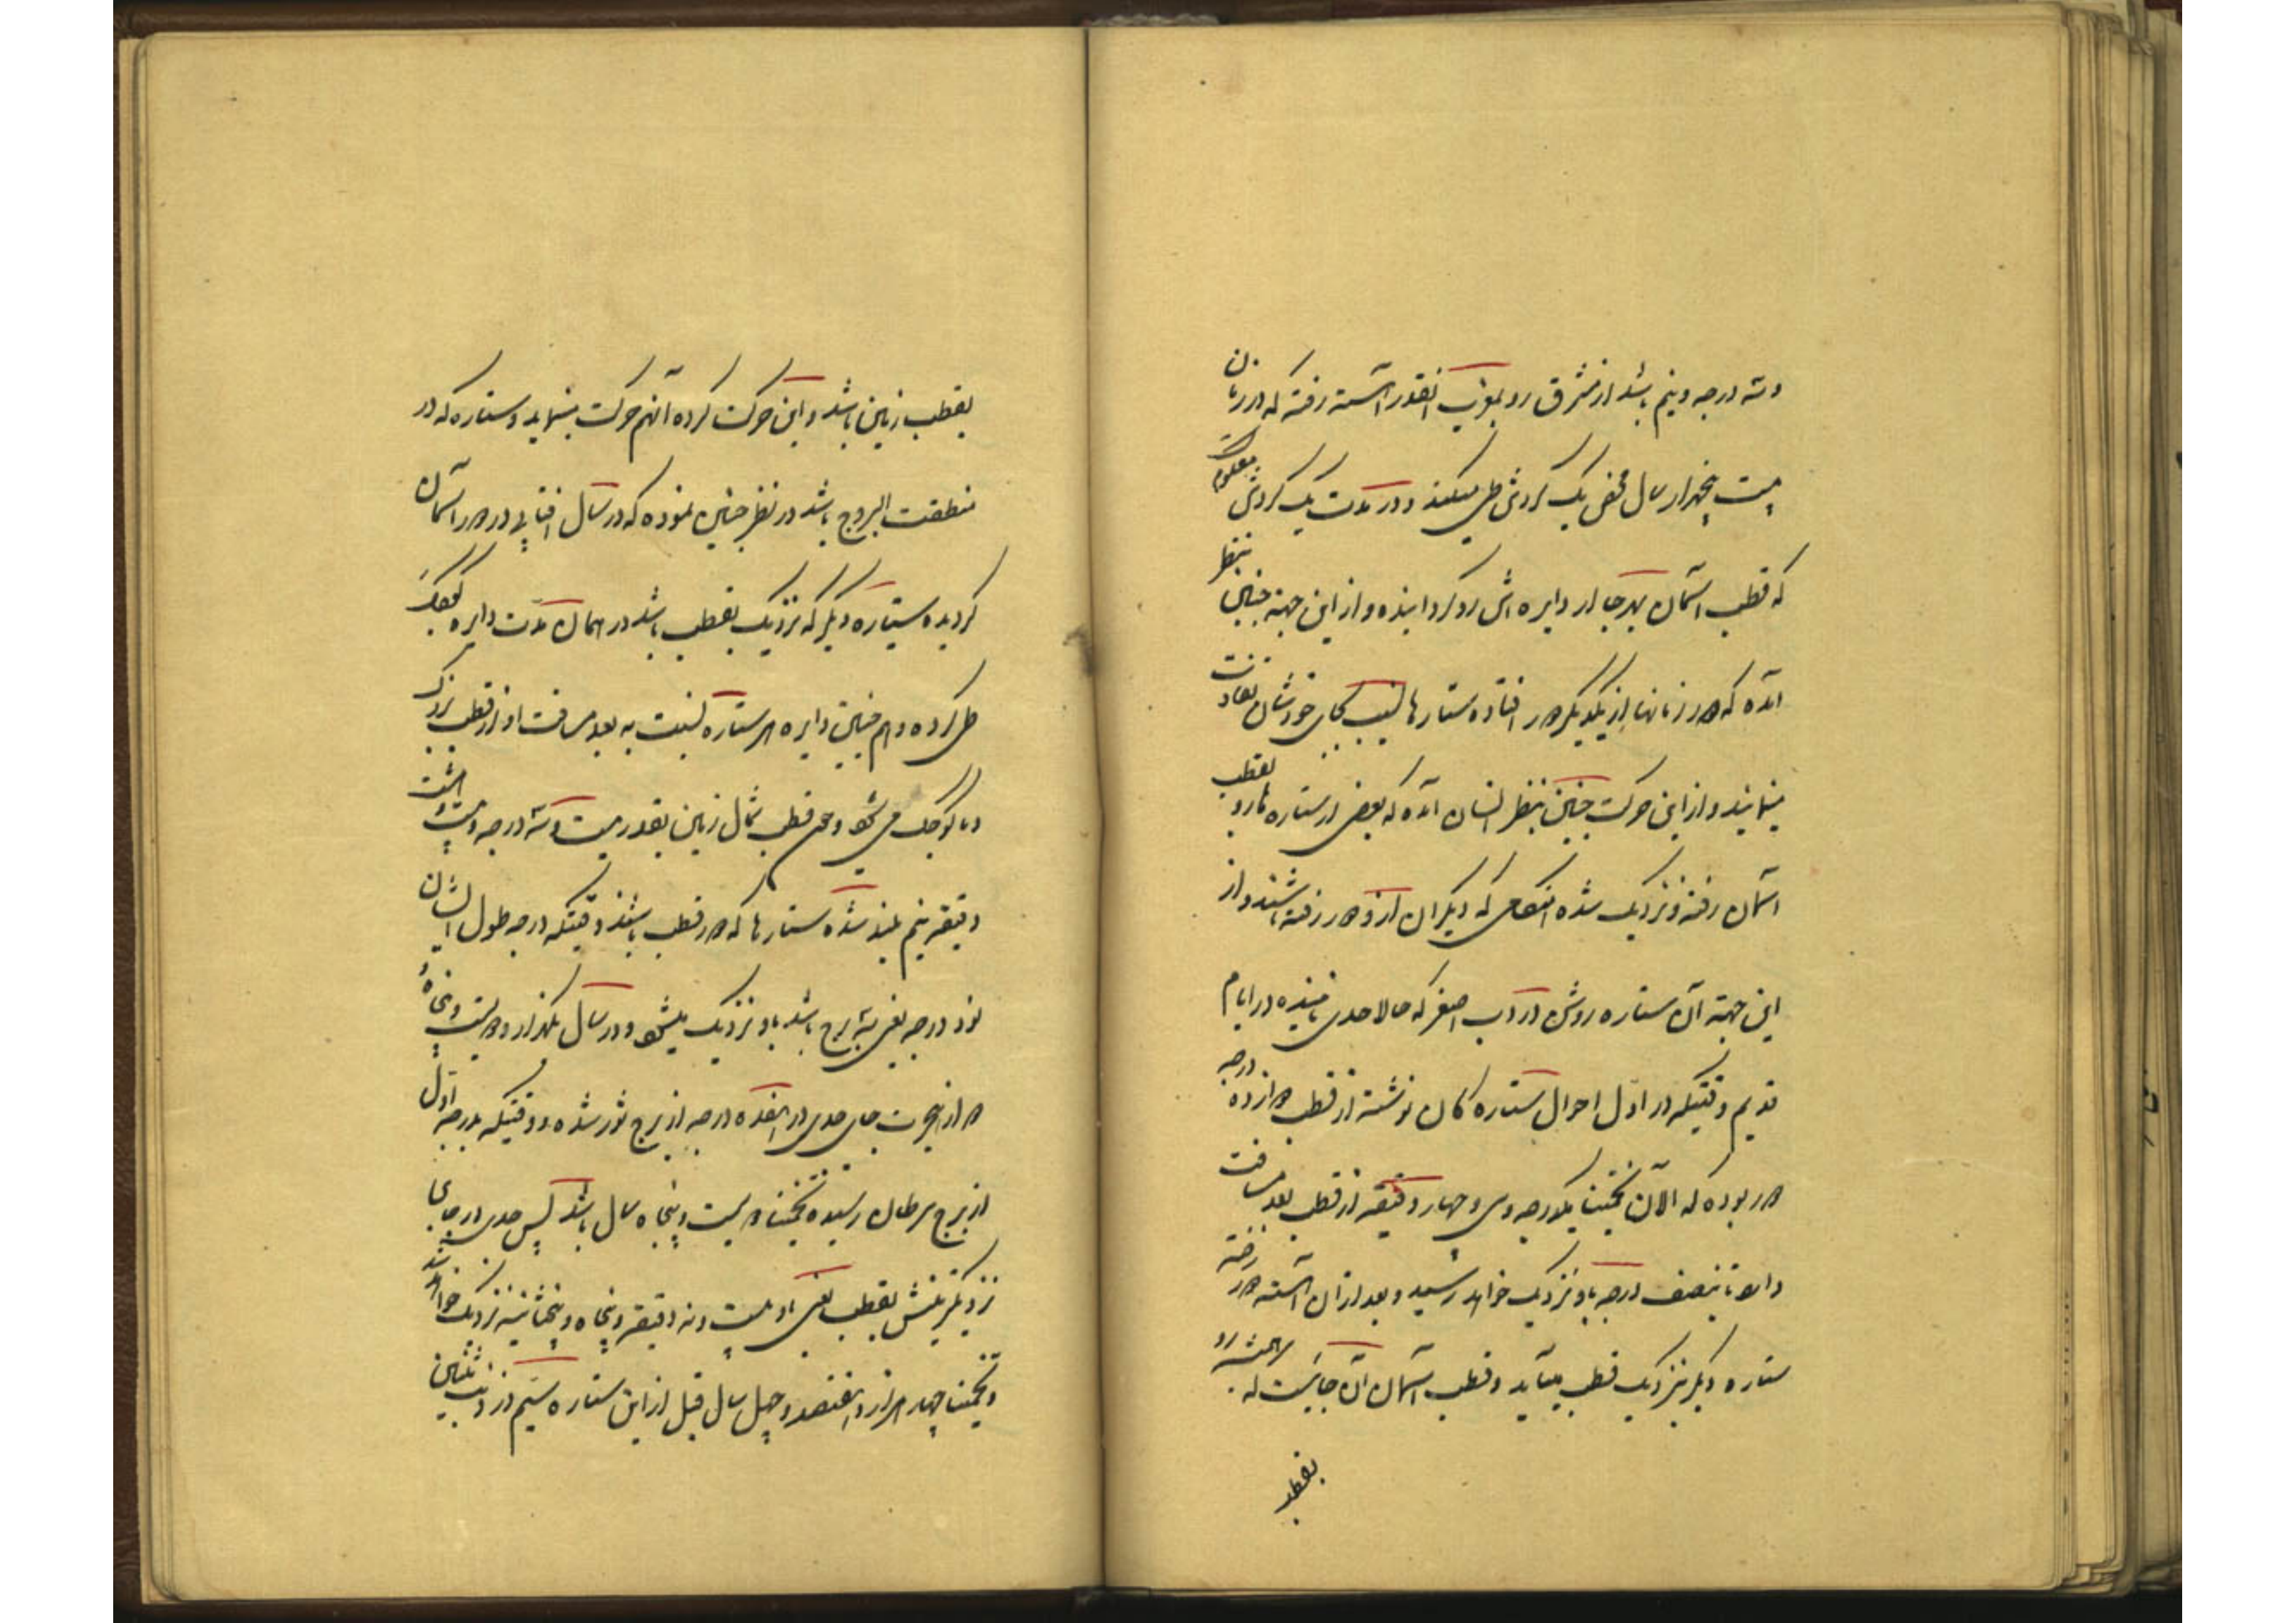 و سه درجه و نیم باشد از مشرق رو بمغرب آنقدر آهسته رفته که در زمان
بیست پنجهزار سال محض یک گردش طی میکند و در مدت یک گردش معلوم است
که قطب آسمان بهر جا از دایره اش رو گردانیده و از این جهة چنین بنظر
آمده که در زمانها از یکدیگر دور افتاده ستارها بجای خودشان تفاوت
مینمایند و از این حرکت چنین بنظر انسان آمده که بعضی از ستاره ها رو بقطب
آسمان رفته و نزدیک شده که دیگران از او دور رفته باشند و از
این جهة آن ستاره روشن در دب اصغر که حالا جدی نامیده در ایام
قدیم وقتیکه در اول احوال ستاره گان نوشته از قطب دوازده درجه
دور بوده که الآن تخمینا یکدرجه و سی و چهار دقیقه از قطب بعد مسافت
دارد تا بنصف درجه باو نزدیک خواهد رسید و بعد از آن آهسته دور رفته
ستاره دیگر نزدیک قطب میآید و قطب آسمان آن جائیست که
بقطب
بقطب زمین باشد و این حرکت کرده آنهم حرکت مینماید و ستاره که در
منطقت البروج باشد در نظر چنین نموده که در سال آفتابی در دور آسمان
گردیده ستاره دیگر که نزدیک بقطب باشد در همان مدت دایره کوچک
طی کرده و هم چنین دایره هر ستاره نسبت به بعد مسافت او از قطب بزرگ
و یا کوچک می شود و قطب شمال زمین بقدر بیست و سه درجه و بیست و هشت
دقیقه نیم بلند شده ستارها که دور قطب باشند وقتیکه درجه طول ایشان
نود درجه یعنی سه برج باشد باو نزدیک میشود و در سال یکهزار و دویست و پنجاه و
از هجرت جای جدی در هفده درجه از برج ثور شده و وقتیکه بدرجه اول
از برج سرطان رسیده تخمینا دویست و پنجاه سال باشد پس جدی در جای
نزدیکترینش بقطب یعنی باو بیست و نه دقیقه و پنجاه و پنج ثانیه نزدیک خواهد شد
و تخمینا چهار هزار و هفتصد و چهل سال قبل از این ستاره سیم در ذنب تنین